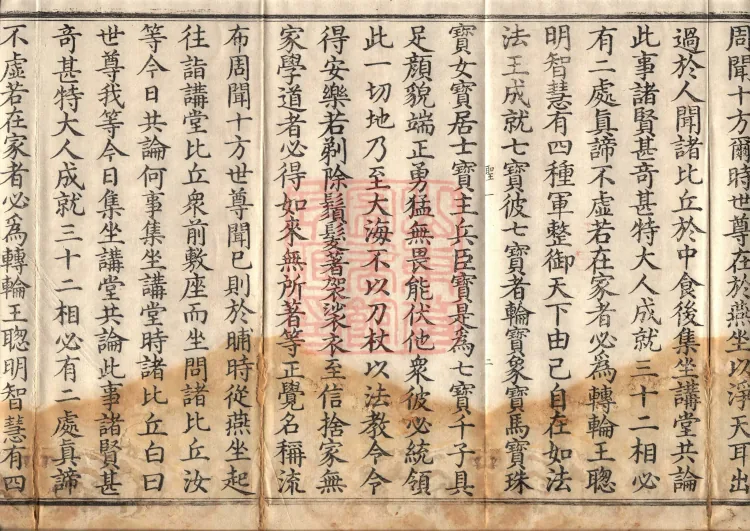 周聞十方爾時世尊在於燕坐以淨天耳出
過於人聞諸比丘於中食後集坐講堂共論
此事諸賢甚奇甚特大人成就三十二相必
有二處眞諦不虛若在家者必爲轉輪王聰
明智慧有四種軍整御天下由己自在如法
法王成就七寶彼七寶者輪寶象寶馬寶珠
聖一 二
寶女寶居士寶主兵臣寶是爲七寶千子具
足顏貌端正勇猛無畏能伏他衆彼必統領
此一切地乃至大海不以刀杖以法教令令
得安樂若剃除鬚髮著袈裟衣至信捨家無
家學道者必得如來無所著等正覺名稱流
布周聞十方世尊聞已則於晡時從燕坐起
往詣講堂比丘衆前敷座而坐問諸比丘汝
等今日共論何事集坐講堂時諸比丘白曰
世尊我等今日集坐講堂共論此事諸賢甚
奇甚特大人成就三十二相必有二處眞諦
不虛若在家者必爲轉輪王聰明智慧有四